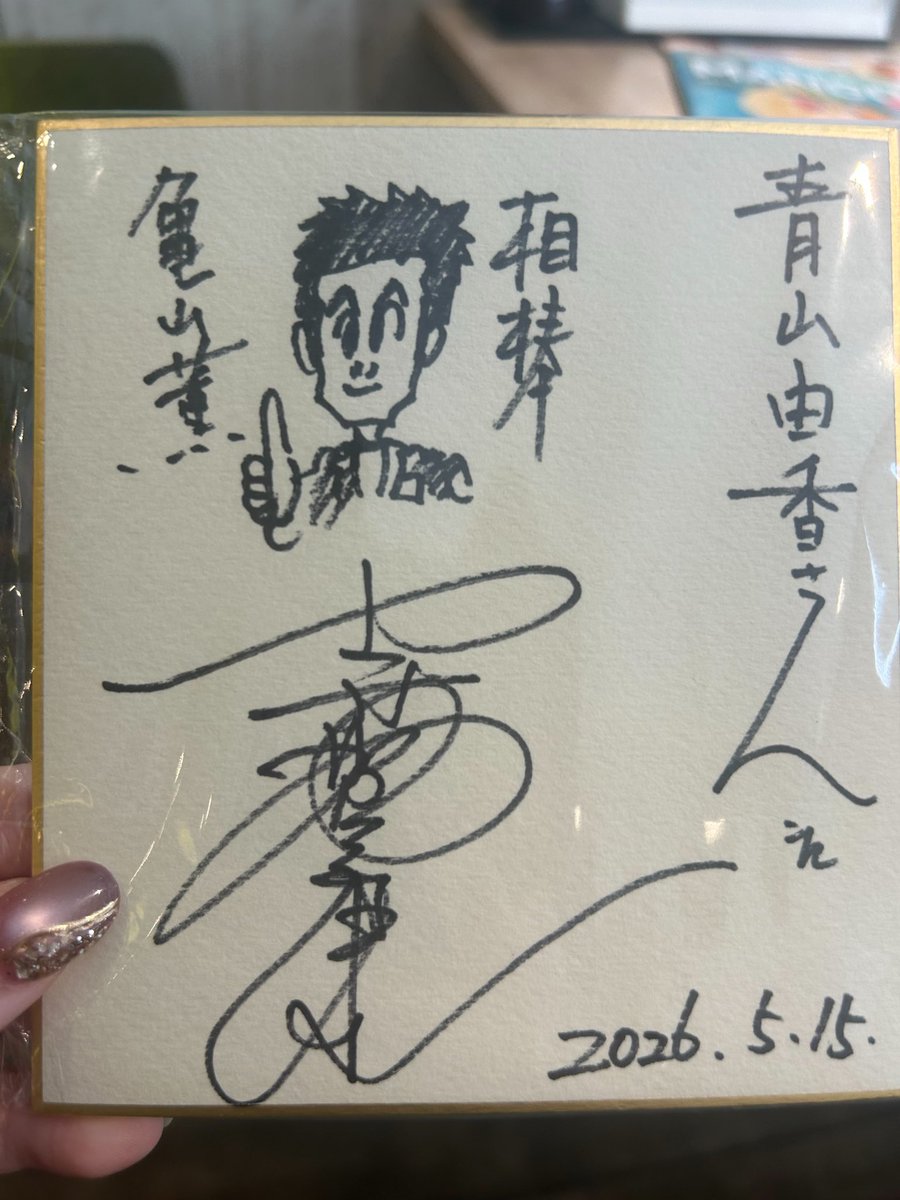 青山由香さん江
相棒
亀山薫
2026.5.15.